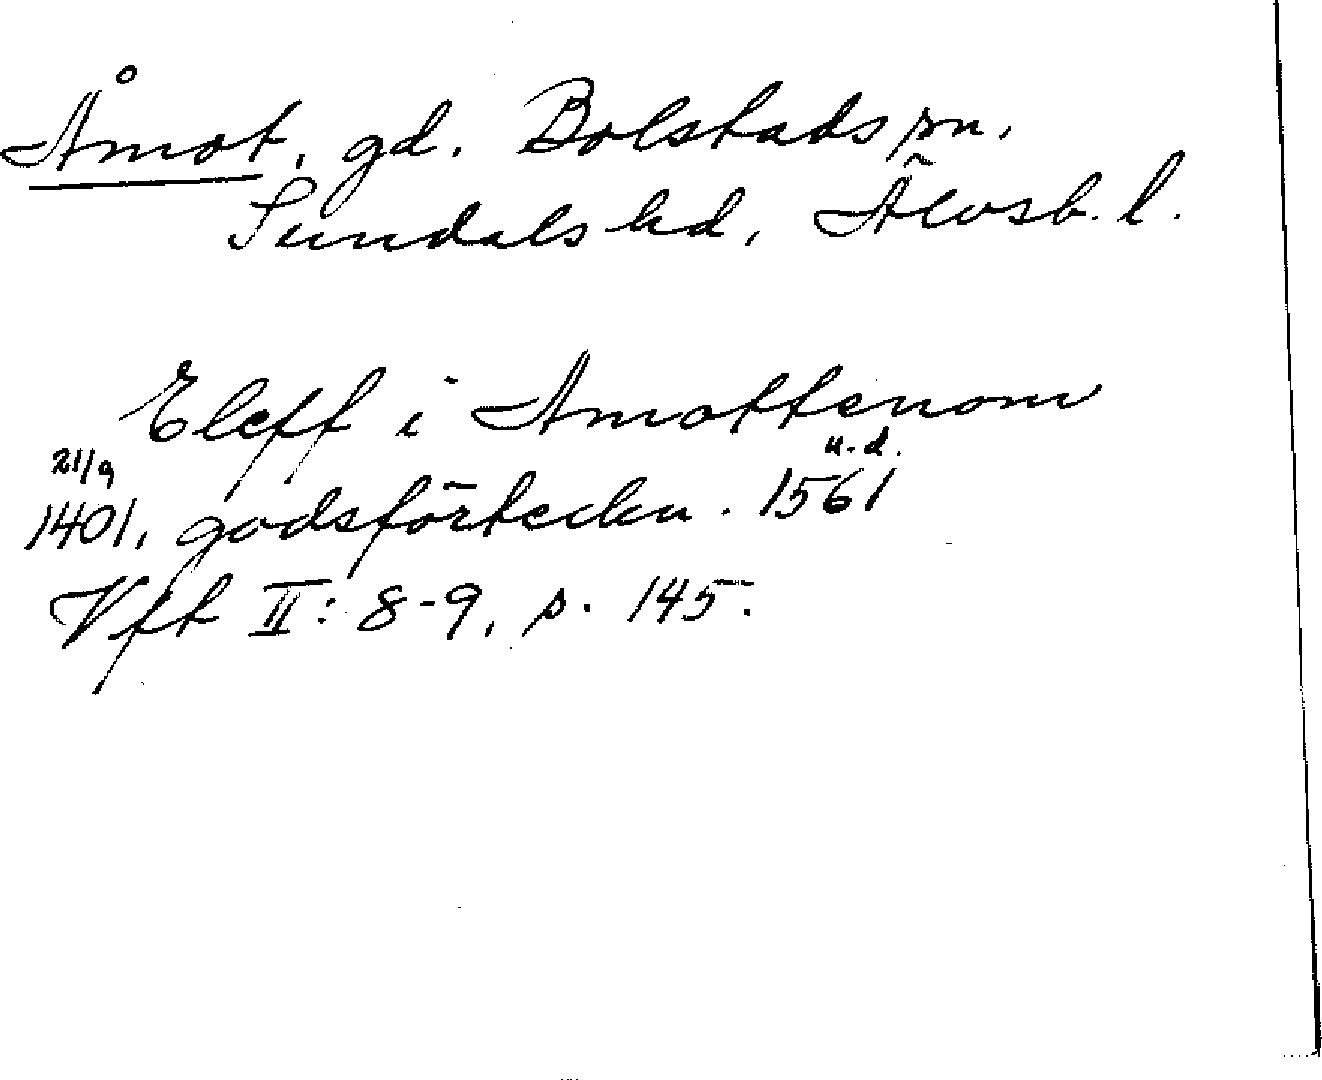 Åmot, gd. Bolstads sn.
Sundals hd, Älvsb. l.
Eleff i Amottenom
21/9 u.d.
1401, godsförteckn. 1561
Vft II: 8-9, s. 145.